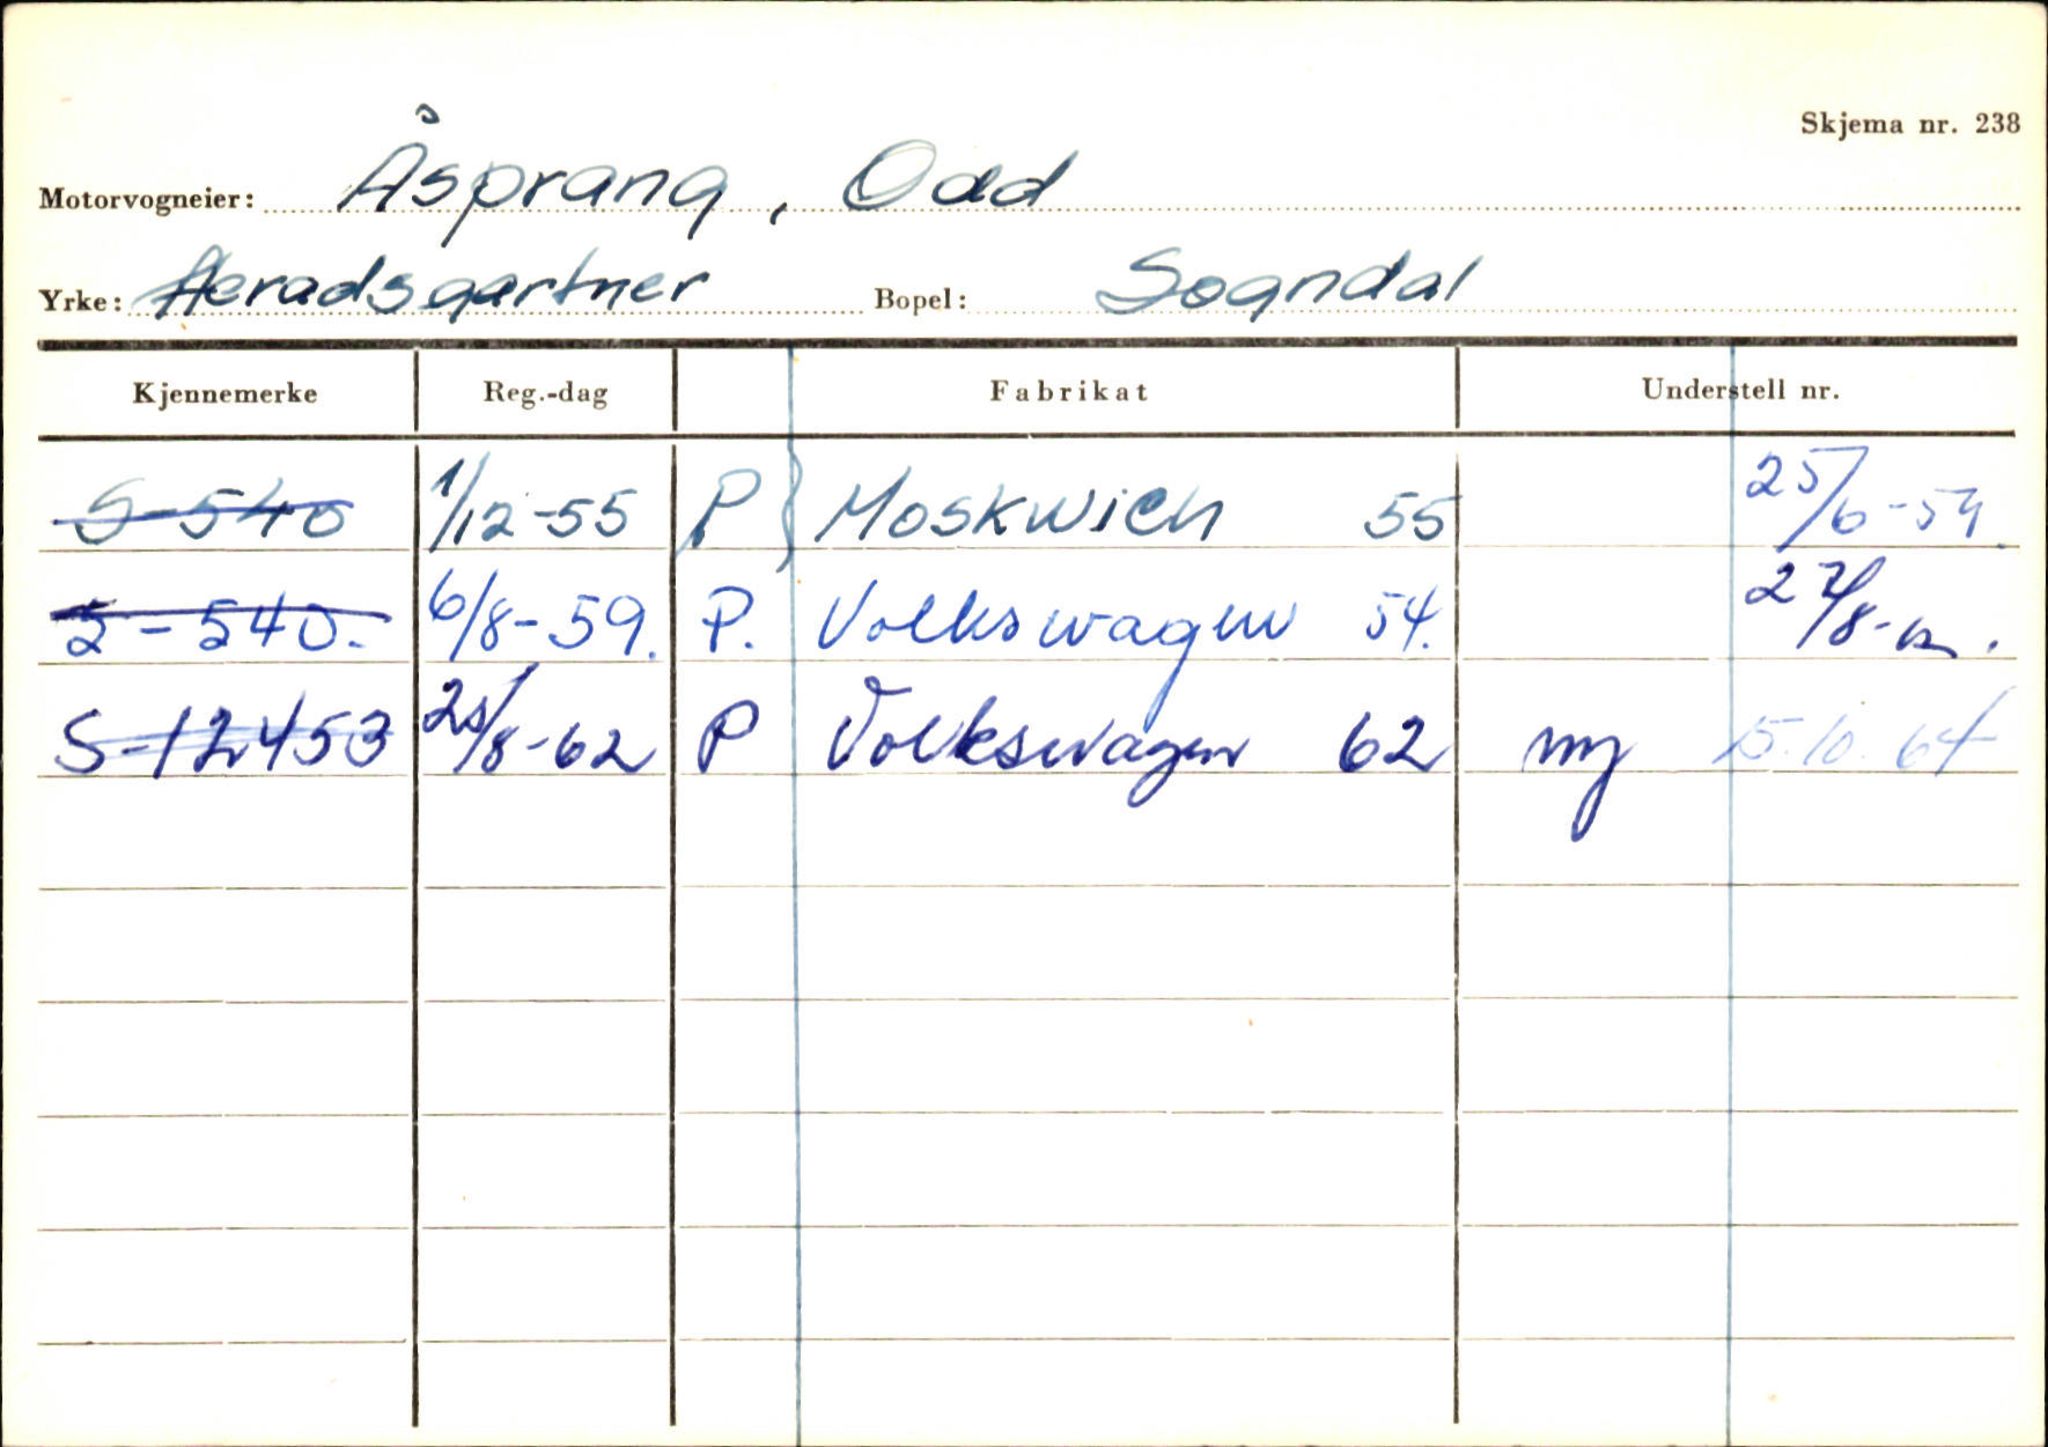 Skjema nr. 238
Motorvogneier: Åsprang, Odd
Yrke: Heradsgartner Bopel: Sogndal
Kjennemerke Reg.-dag Fabrikat Understell nr.
S-540 1/12-55 P Moskwich 55 25/6-59.
S-540. 6/8-59. P. Volkswagen 54. 27/8-
S-12453 25/8-62 P Volkswagen 62 ny 15.10.64